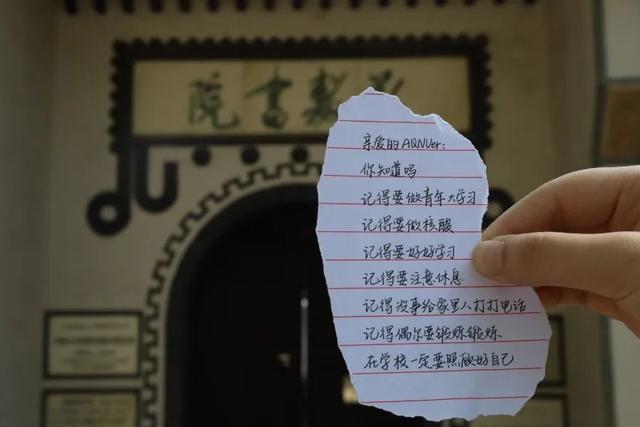 敬敷書院
亲爱的AQNUer:
你知道吗
记得要做青年大学习
记得要做核酸
记得要好好学习
记得要注意休息
记得没事给家里人打打电话
记得偶尔要锻炼锻炼
在学校一定要照顾好自己